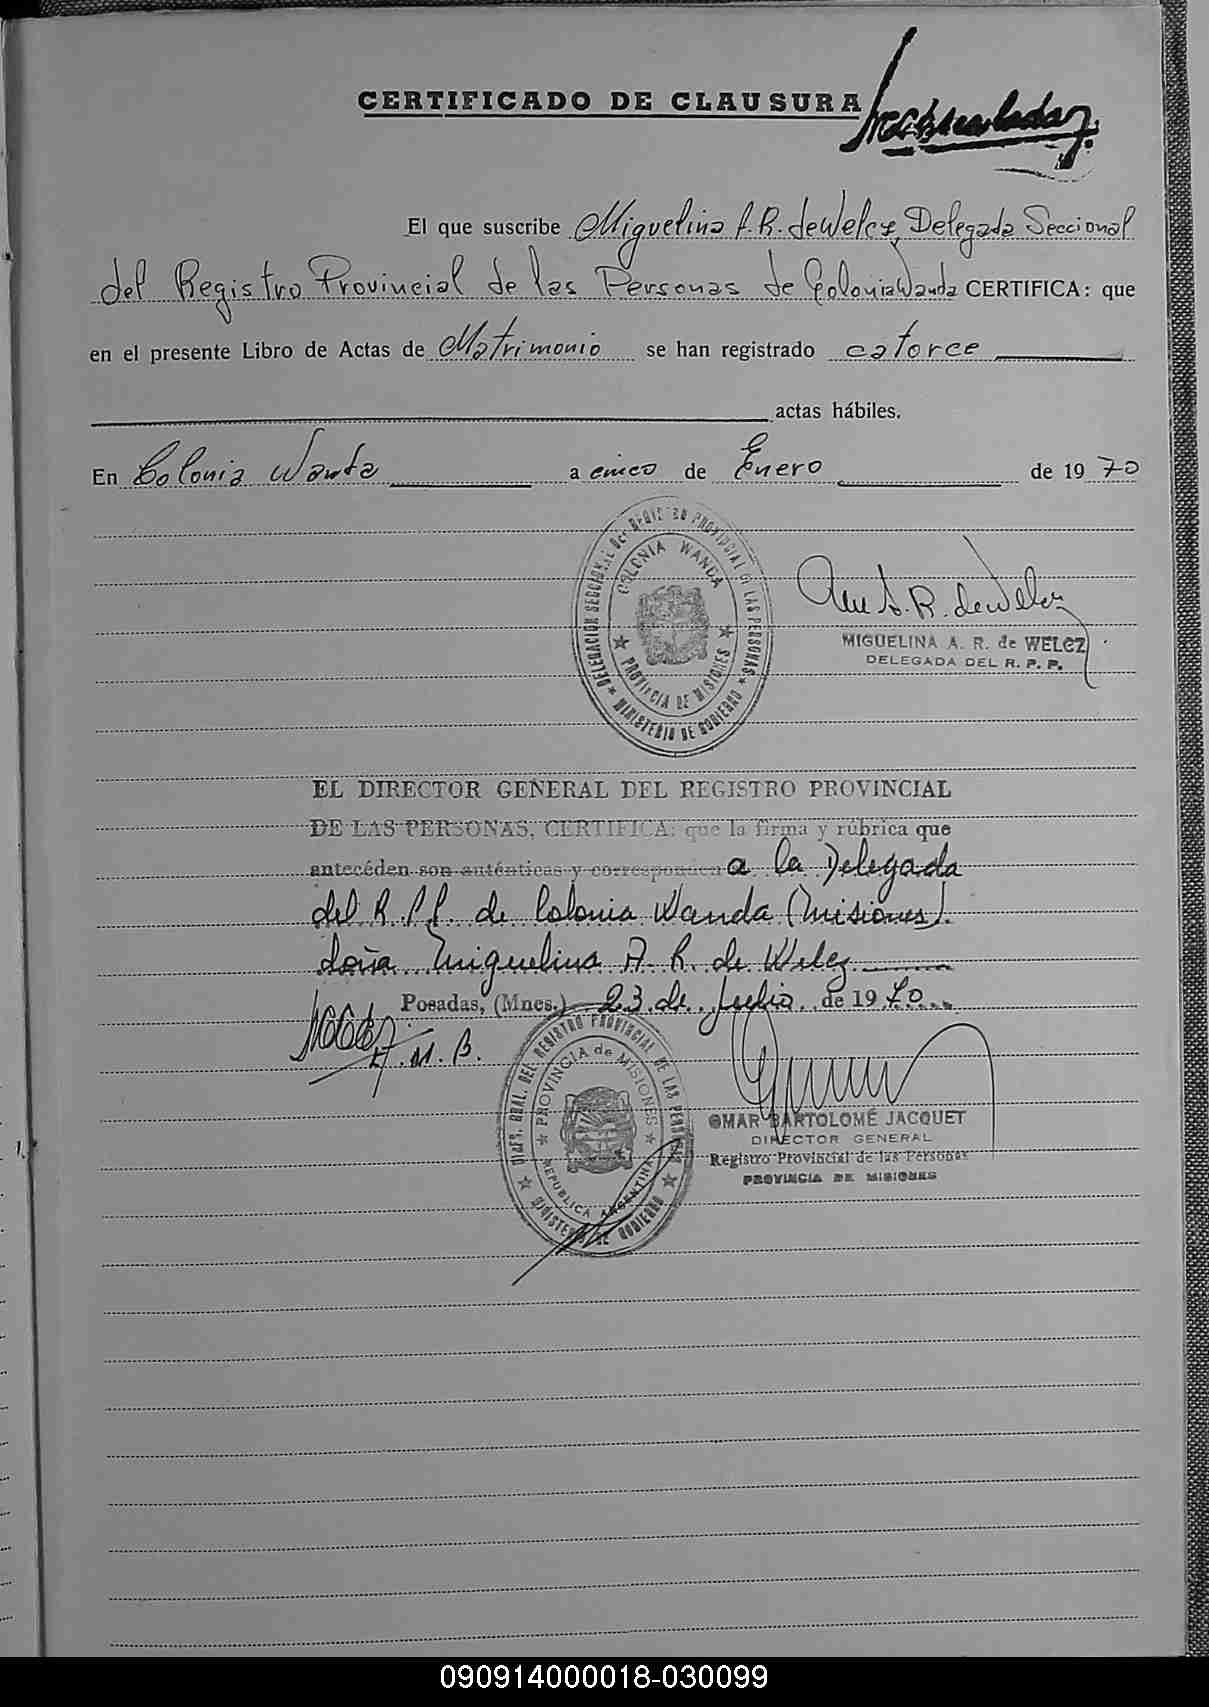 CERTIFICADO DE CLAUSURA
El que suscribe Miguelina A. R. de Welcz, Delegada Seccional
del Registro Provincial de las Personas de Colonia Wanda CERTIFICA: que
en el presente Libro de Actas de Matrimonio se han registrado catorce
actas hábiles.
En Colonia Wanda a cinco de Enero de 1970
DELEGACIÓN SECCIONAL DEL REGISTRO PROVINCIAL DE LAS PERSONAS
COLONIA WANDA
PROVINCIA DE MISIONES
MINISTERIO DE GOBIERNO
A. R. de Welcz
MIGUELINA A. R. de WELCZ
DELEGADA DEL R. P. P.
EL DIRECTOR GENERAL DEL REGISTRO PROVINCIAL
DE LAS PERSONAS, CERTIFICA: que la firma y rúbrica que
antecéden son auténticas y corresponden a la Delegada
del R.P.P. de Colonia Wanda (Misiones).
doña Miguelina A. R. de Welcz
Posadas, (Mnes.) 23 de Julio de 1970
A.M.B.
DIREC. GRAL. DEL REGISTRO PROVINCIAL DE LAS PERSONAS
PROVINCIA de MISIONES
REPUBLICA ARGENTINA
MINISTERIO DE GOBIERNO
OMAR BARTOLOMÉ JACQUET
DIRECTOR GENERAL
Registro Provincial de las Personas
PROVINCIA DE MISIONES
090914000018-030099